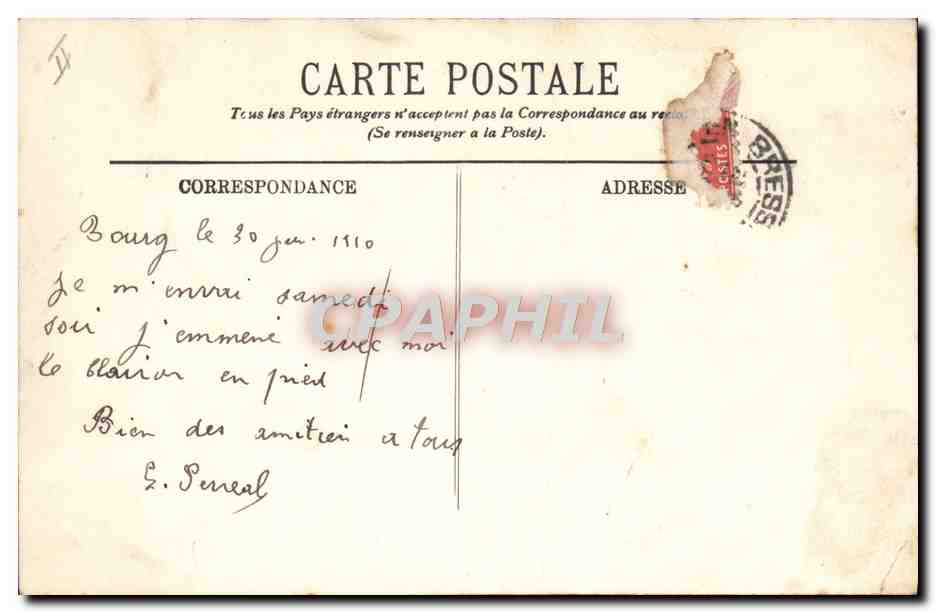 II
CARTE POSTALE
Tous les Pays étrangers n'acceptent pas la Correspondance au
(Se renseigner a la Poste).
CORRESPONDANCE
ADRESSE
POSTES
BRESS
Bourg le 30 1910
Je m'envai samedi
soir j'emmene avec moi
le clairon en pied
Bien des amitiés a tous
G. Perreal
CPAPHIL